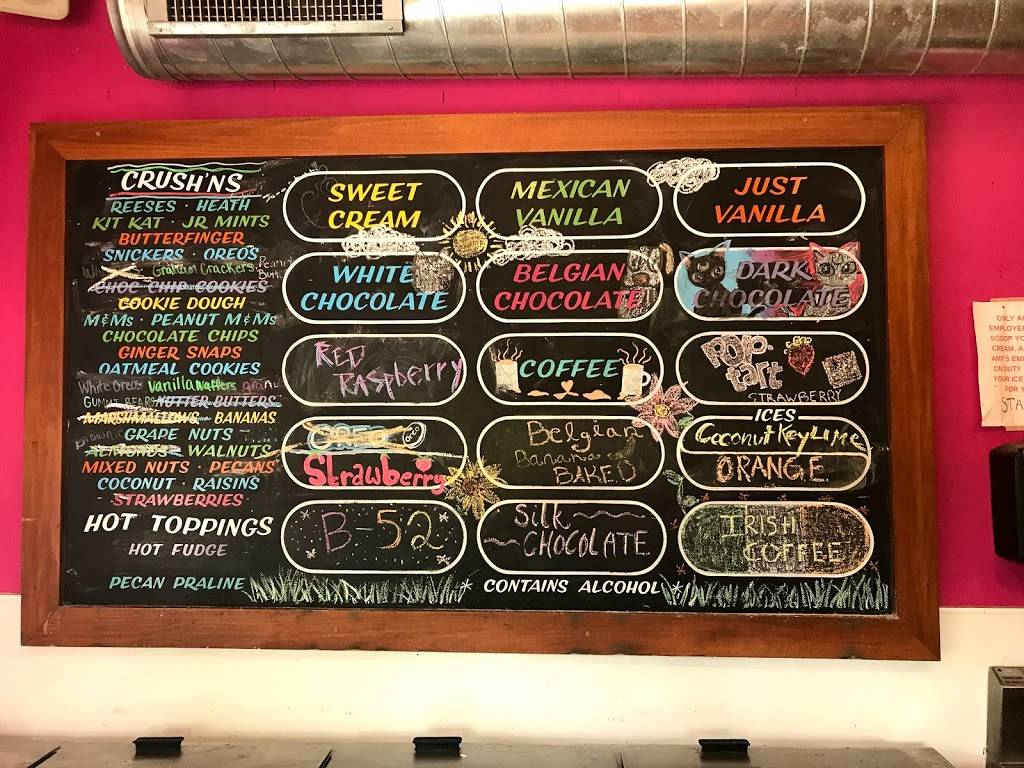 CRUSH'NS
REESES · HEATH
KIT KAT · JR MINTS
BUTTERFINGER
SNICKERS · OREOS
Graham Crackers
CHOC CHIP COOKIES
COOKIE DOUGH
M&Ms · PEANUT M&Ms
CHOCOLATE CHIPS
GINGER SNAPS
OATMEAL COOKIES
White Oreos Vanilla Waffers
GUMMI BEARS NUTTER BUTTERS
MARSHMALLOWS · BANANAS
GRAPE NUTS
ALMONDS · WALNUTS
MIXED NUTS · PECANS
COCONUT · RAISINS
STRAWBERRIES
HOT TOPPINGS
HOT FUDGE
PECAN PRALINE
SWEET
CREAM
MEXICAN
VANILLA
JUST
VANILLA
WHITE
CHOCOLATE
BELGIAN
CHOCOLATE
DARK
CHOCOLATE
RED
RASPberry
COFFEE
POP-
tart
STRAWBERRY
OREO
Strawberry
Belgian
Bananas
BAKED
ICES
Coconut Key Lime
ORANGE
B-52
Silk
CHOCOLATE
IRISH
COFFEE
* CONTAINS ALCOHOL *
ONLY
EMPLOYEE
SCOOP YO
CREAM. A
AMY'S EM
ON DUTY
YOUR ICE
FOR
STA